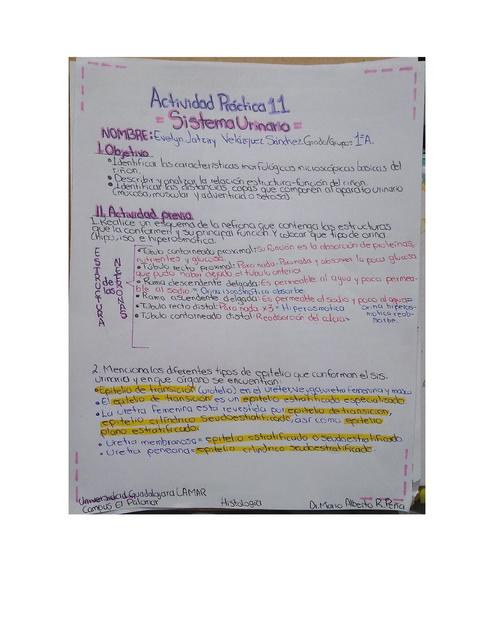 Actividad Práctica 11
= Sistema Urinario =
NOMBRE: Evelyn Jatziry Velázquez Sánchez Grado/Grupo: 1°A.
I. Objetivo
• Identificar las características morfológicas microscópicas básicas del
riñón.
• Describir y analizar la relación estructura-función del riñón.
• Identificar las distancias capas que componen al aparato urinario
(mucosa, muscular y adventicia o serosa).
II. Actividad previa
1. Realice un esquema de la nefrona que contenga las estructuras
que la conforman y su principal función y colocar que tipo de orina
(hipo, iso e hiperosmótica).
ESTRUCTURA
de las
NEFRONAS
• Túbulo contorneado proximal: Su función es la absorción de proteínas,
nutrientes y glucosa.
• Túbulo recto proximal: Para nada. Para nada y absorver la poca glucosa
que pudo haber dejado el túbulo anterior.
• Rama descendente delgada: Es permeable al agua y poco permea-
ble al sodio = Orina isosmótica absorbe.
• Rama ascendente delgada: Es permeable al sodio y poco al agua =
• Túbulo recto distal: Para nada x3 = Hiperosmótica
orina hiperos-
mótica reab-
sorbe.
• Túbulo contorneado distal: Reabsorción del calcio =
2. Menciona los diferentes tipos de epitelio que conforman el sis.
urinario y en que órgano se encuentran.
• Epitelio de transición (urotelio) en el uréter, vejiga, uretra femenina y masculina
• El epitelio de transición es un epitelio estratificado especializado
• La uretra femenina está revestida por epitelio de transición,
epitelio cilíndrico seudoestratificado, así como epitelio
plano estratificado.
• Uretra membranosa = epitelio estratificado o seudoestratificado.
• Uretra peneana = epitelio cilíndrico seudoestratificado.
Universidad Guadalajara LAMAR
Campus El Palomar
Histología
Dr. Mario Alberto R. Peña